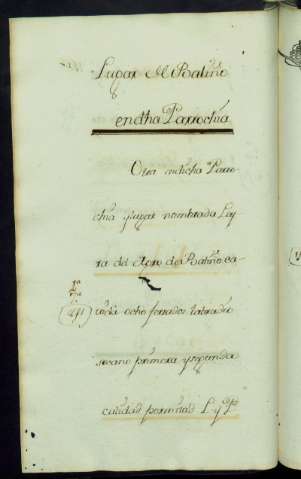 Lugar del Ratiño
endha Parrochia
Otra endicha Parro-
chia y lugar nombrada Ley-
ra del Agro de Ratiño ca-
291
vida ocho ferrados labradio
secano primera y segunda
calidad por mitad L. y P.